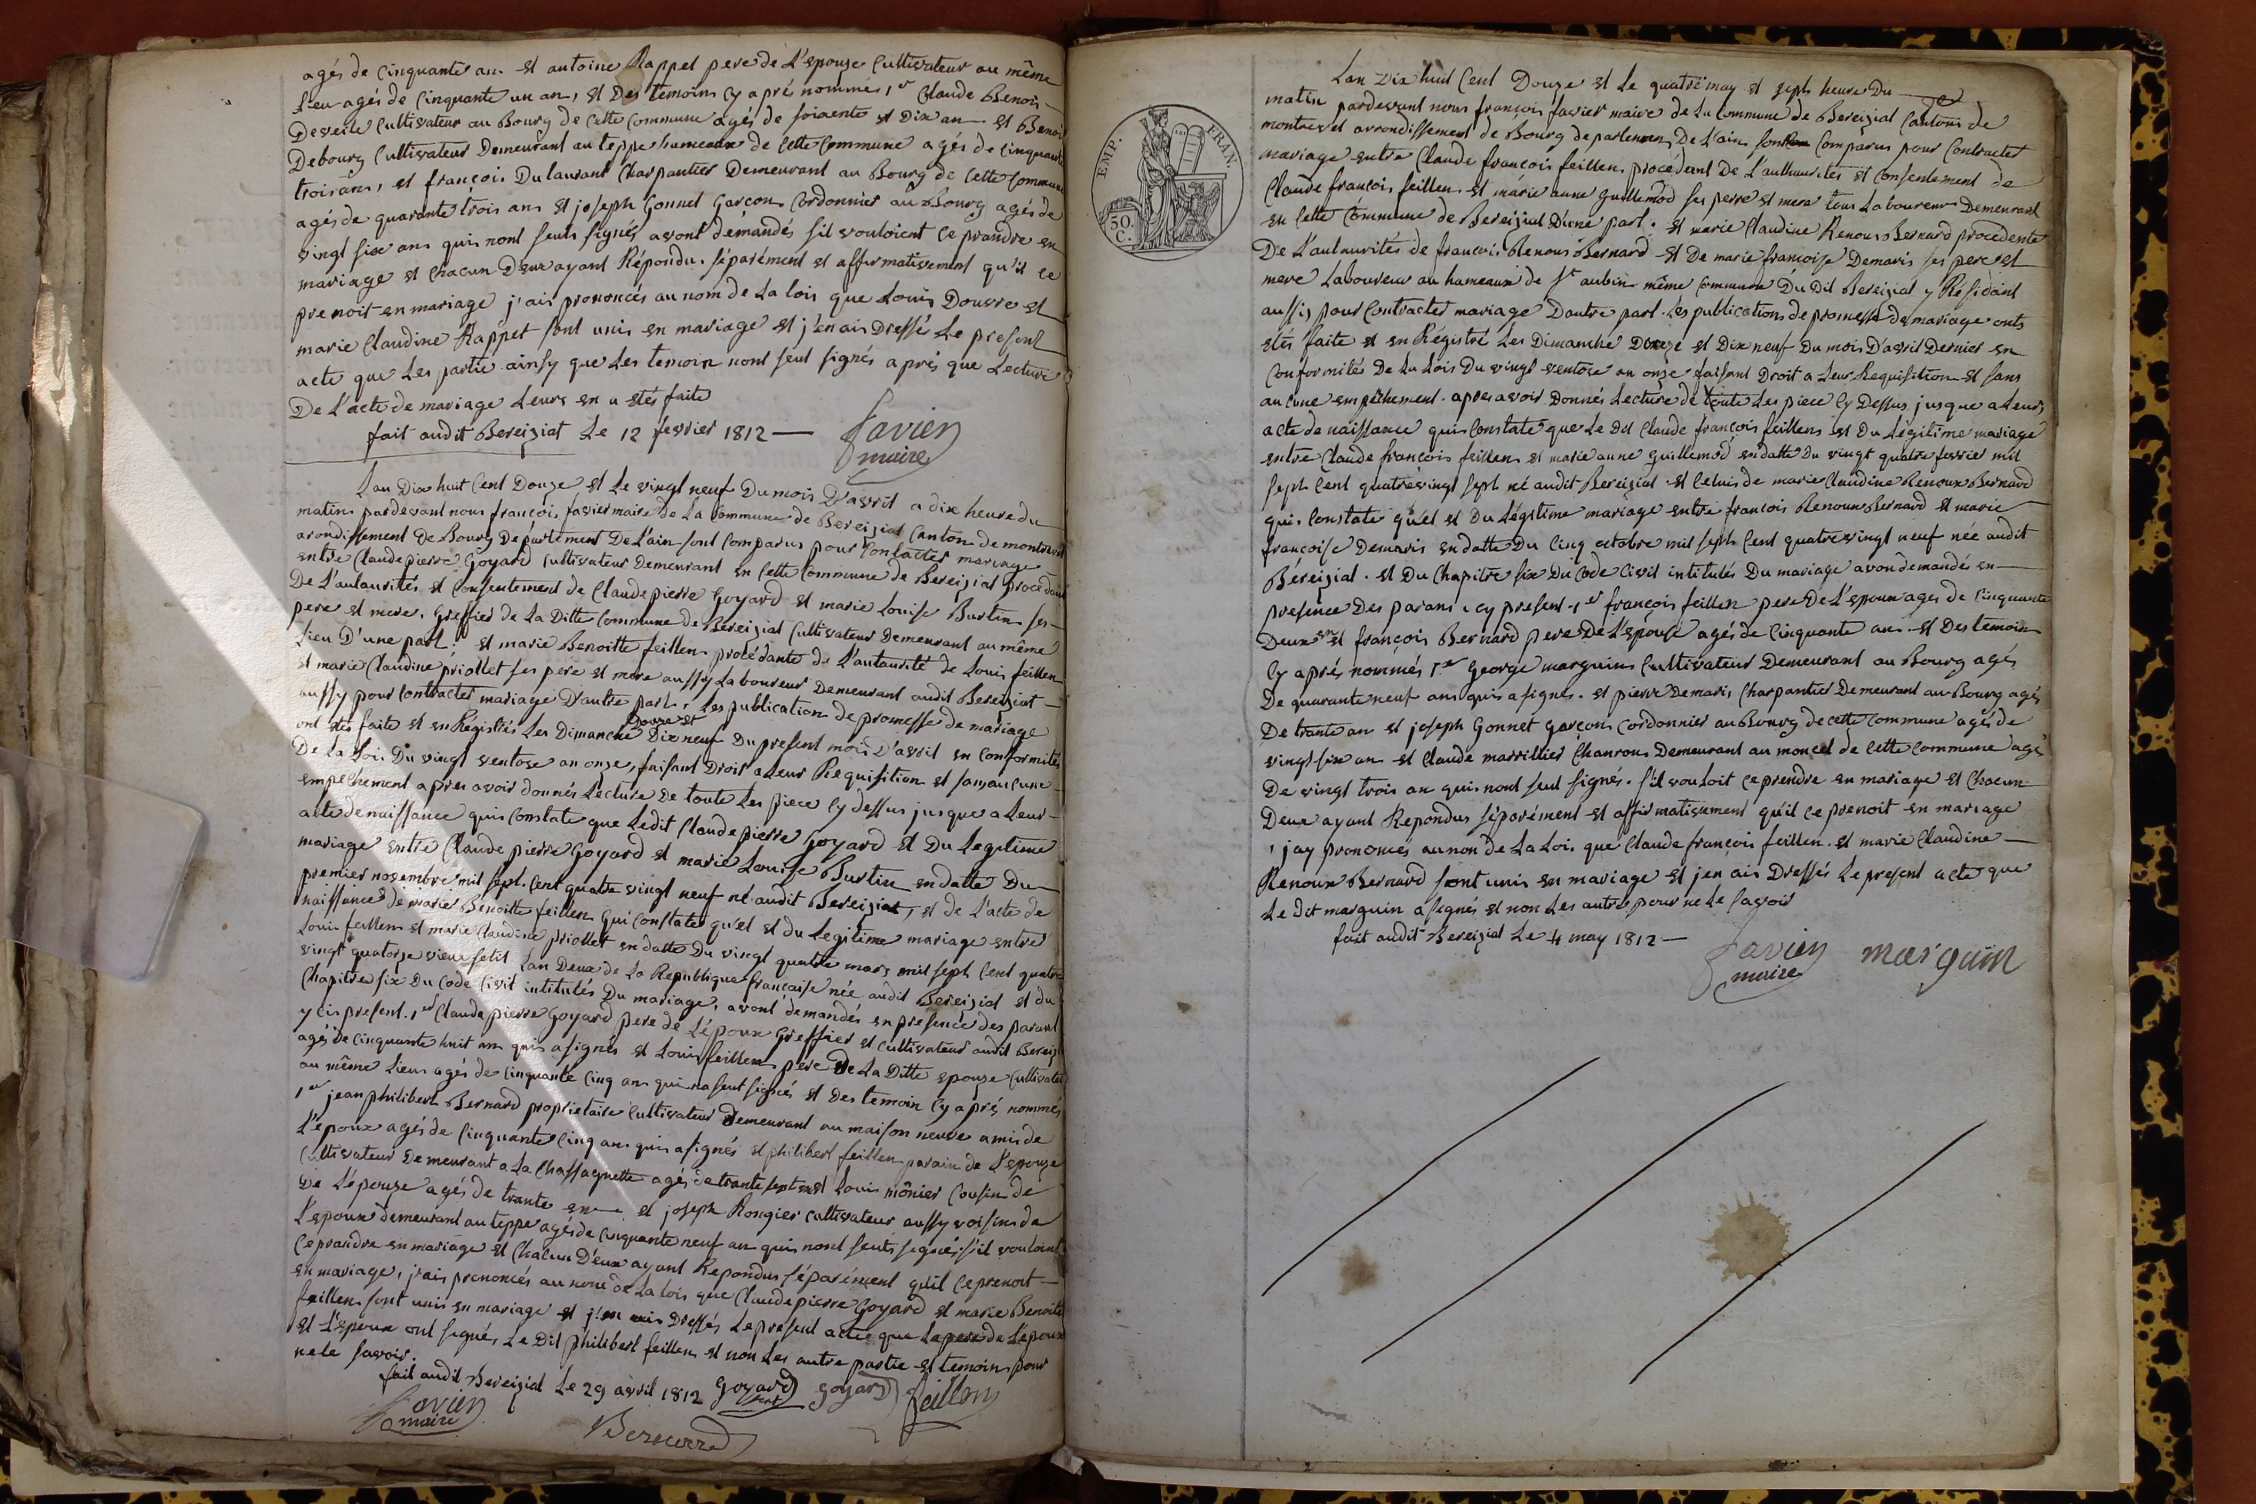 agés de Cinquante an. et antoine Rappet pere de L'epouze Cultivateur au même
Lieu agés de Cinquante un an, et Des temoins Cy aprés nommés 1er Claude Benois
Deveile Cultivateur au Bourg de Cette Commune agés de soixente et Dix an et Benoi
Debourg Cultivateur Demeurant au teppe hameaux de Cette Commune agés de Cinquante
trois ans, et françois Dulaurant Charpantier Demeurant au Bourg de Cette Commune
agés de quarante trois ans et joseph Gonnet Garçon Cordonnier au Bourg agés de
vingt six ans quis nont seuts signés avont démandés sil vouloient Ce prandre en
mariage et Chacun D'eux ayant Répondu séparément et affirmativement qu'il Ce
prenoit en mariage j'ais prononcés au nom de La lois que Louis Douvre et
marie Claudine Rappet sont unis en mariage et j'en ais Dressé Le present
acte que Les partie ainsy que Les temoin nont seut signés aprés que Lecture
De L'acte de mariage Leurs en a etés faite
fait audit Bereiziat Le 12 fevrier 1812
favier
maire
Lan Dix huit Cent Douze et Le vingt neuf Du mois D'avril a dix heure du
matin pardevant nous françois favier maire de La Commune de Bereiziat Canton de montrevel
arondissement De Bourg Département De L'ain sont Comparus pour Contacter mariage
entre Claude pierre Goyard Cultivateur Demeurant en Cette Commune de Bereiziat procedant
De L'autaurités et Consentement de Claude pierre Goyard et marie Louise Burtin ses
pere et mere, Greffier de La Ditte Commune de Bereiziat Cultivateur Demeurant au même
Lieu D'une part; et marie Benoitte feillen procédante de L'autaurité de Louis feillen
et marie Claudine priollet ses pere et mere aussy Laboureur Demeurant audit Bereiziat
aussy pour Contracter mariage D'autre part, Les publication de promesse de mariage
ont etés faite et en Régistrés Les Dimanche Douze et Dix neuf Du present mois D'avril en Conformités
De La Loi Du vingt ventose an onze, faisant Droit a Leur Requisition et sans aucune
empechement apres avoir donnés Lecture De toute Les piece Cy dessus jusques a Leur
acte de naissance quis Constate que Ledit Claude pierre Goyard et Du Legitime
mariage entre Claude pierre Goyard et marie Louise Burtin en datte Du
premier novembre mil sept Cent quatre vingt neuf né audit Bereiziat, et de L'acte de
naissance de marie Benoitte feillen Qui Constate qu'el et du Legitime mariage entre
Louis feillen et marie Claudine priollet en datte Du vingt quatre mars mil sept Cent quatre
vingt quatorze vieux stil Lan Deux de La Republique francaise née audit Bereiziat et du
Chapitre six Du Code Civil intitulés Du mariage, avont démandés en presence des parant
y Cis present. 1er Claude pierre Goyard pere de L'époux Greffier et Cultivateur audit Bereizi
agés de Cinquante huit an quis a signés et Louis feillen pere De La Ditte epouze Cultivateur
au même Lieu agés de Cinquante Cinq an qui na seut signés et Des temoin Cy aprés nommés
1er jean philibert Bernard proprietaire Cultivateur Demeurant au maison neuve amis de
L'époux agés de Cinquante Cinq an quis a signés et philibert feillen parain de L'epouze
Cultivateur Demeurant a La Chassagnette agés de trante sept an et Louis mônier Cousin de
De L'épouze agés de trante en et joseph Rongier Cultivateur aussy voisin de
L'epoux demeurant au teppe agés de Cinquante neuf an quis nont seuts signés. s'il vouloint
Ce prandre en mariage et Chacun D'eux ayant Repondus séparément qu'il Ce prenoit
en mariage, j'ais prononcés au nom De La lois que Claude pierre Goyard et marie Benoite
feillen sont unis en mariage et j'en ais Dressés Le present acte que Le pere de L'époux
et L'epoux ont signés Le Dit philibert feillen et non Les autre partie et temoin pour
ne le savoir.
fait audit Bereiziat Le 29 avril 1812 Goyard goyard feillen
favier
maire
Bernard
Lan Dix huit Cent Douze et Le quatre may et sept heure Du
matin pardevant nous françois favier maire de La Commune de Bereiziat Cantons de
montrevel arrondissement de Bourg departement De L'ain sont Comparus pour Contracter
mariage entre Claude francois feillen procédant De L'authaurités et Consentement de
Claude françois feillen et marie anne guillemod ses perre et mere tous Laboureur Demeurant
en Cette Commune de Bereiziat D'une part. et marie Claudine Renoux Bernard procedente
De L'autaurités de francois Renoux Bernard et De marie françoise Demaris ses pere et
mere Laboureur au hameaux de St aubin même Commune Du Dit Bereiziat y Résidant
aussis pour Contracter mariage D'autre part. Les publications de promesse de mariage onts
etés faite et en Régistré Les Dimanche Douze et Dix neuf Du mois D'avril Dernier en
Conformités De La Lois Du vingt ventose an onze faisant Droit a Leur Requisition et sans
aucune empêchement. apres avoir Donnés Lecture de toute Les piece Cy Dessus jusque a Leurs
acte de naissance quis Constate que Le Dit Claude françois feillens et Du Légitime mariage
entre Claude francois feillen et marie anne Guillemod en datte Du vingt quatre fevrier mil
sept Cent quatrevingt sept né audit Bereiziat et Celuis de marie Claudine Renoux Bernard
quis Constate qu'el et Du Légitime mariage entre francois Renoux Bernard et marie
francoise Demaris en datte Du Cinq octobre mil sept Cent quatre vingt neuf née audit
Béreiziat. et Du Chapitre six Du Code Civil intitulés Du mariage avon demandés en
presence Des parans Cy present. 1er françois feillen pere De L'epoux agés de Cinquante
Deux an et françois Bernard pere De L'épouse agés de Cinquante an et Des temoin
Cy aprés nommés 1er George marguin Cultivateur Demeurant au Bourg agés
De quarante neuf ans quis a signés. et pierre Demaris Charpantier Demeurant au Bourg agés
De trante an et joseph Gonnet garçon Cordonnier au Bourg de cette Commune agés de
vingt six an et Claude marrillier Chanrons Demeurant au moncel de Cette Commune agé
De vingt trois an quis nont seut signés. s'il vouloit Ce prendre en mariage et Chacun
Deux ayant Repondus séparément et affirmativement qu'il Ce prenoit en mariage
, jay prononcés au non de La Lois que Claude francois feillen et marie Claudine
Renoux Bernard sont unis en mariage et jen ais Dressés Le present acte que
Le Dit marguin a signés et non Les autre pour ne Le savoir
fait audit Bereiziat Le 4 may 1812
favier
maire
marguin
EMP. FRAN.
50
C.